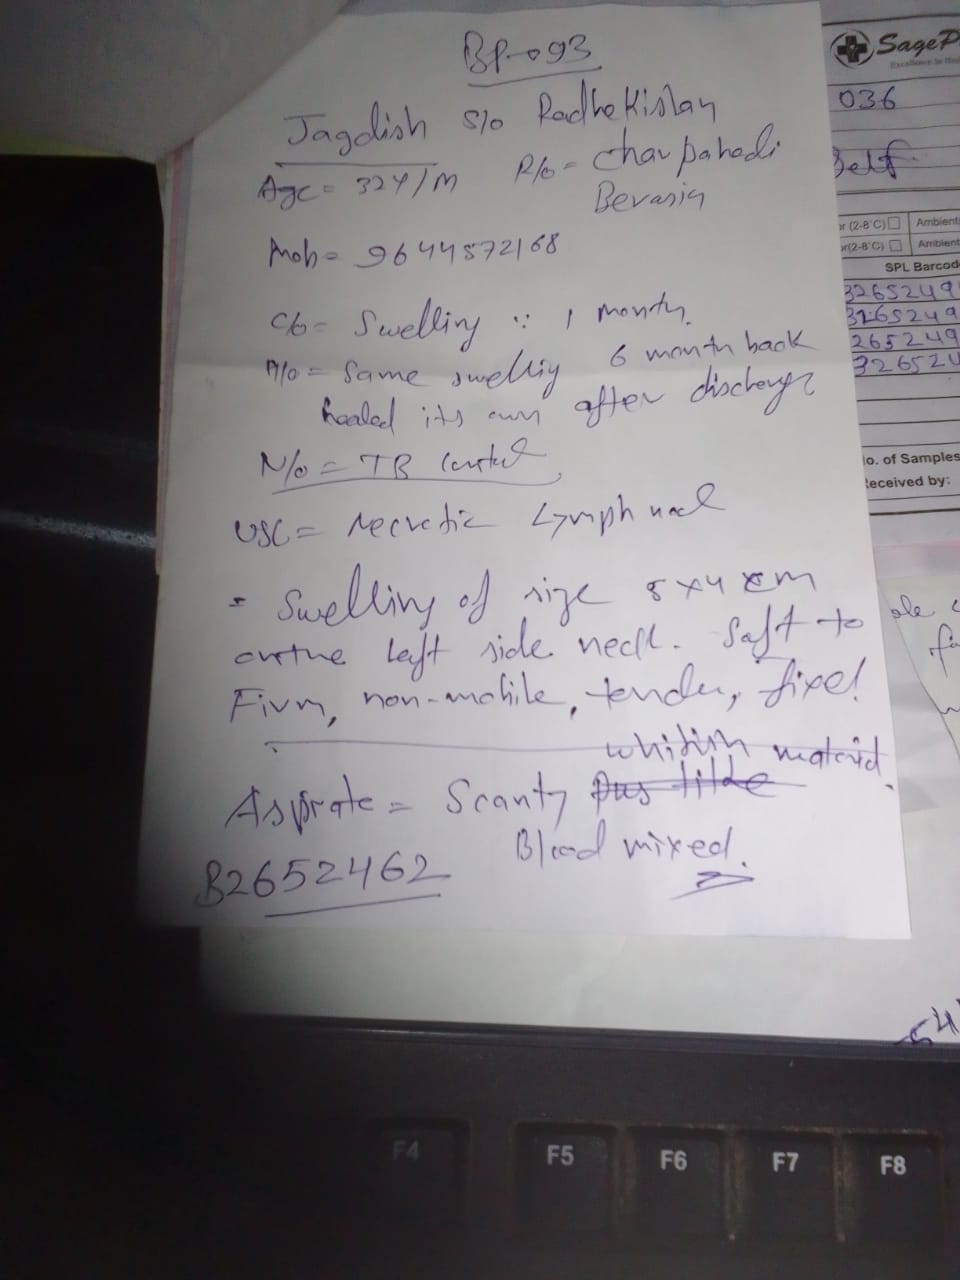 BP-093
Jagdish S/o Radhe Kishan
Age = 32Y/M R/o = Char pahadi
Berasia
Mob = 9644572168
C/o = Swelling ∵ 1 month.
H/o = Same swelling 6 month back
healed its own after discharge
N/o = TB contact
USG = Necrotic Lymph node
- Swelling of size 5x4 cm
on the left side neck. Soft to
Firm, non-mobile, tender, fixed
whitish material.
Aspirate = Scanty Pus like
Blood mixed.
B2652462
SageP
036
Self
r (2-8°C) Ambient
r(2-8°C) Ambient
SPL Barcod
3265249
265249
32652
o. of Samples
eceived by:
F4
F5
F6
F7
F8